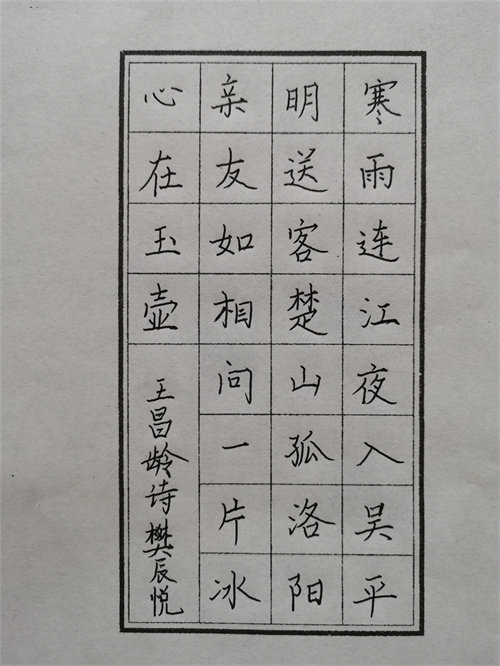 寒雨连江夜入吴平
明送客楚山孤洛阳
亲友如相问一片冰
心在玉壶
王昌龄诗樊辰悦